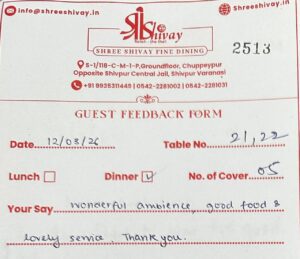 info@shreeshivay.in
Shreeshivay.in
Shivay
SHREE SHIVAY FINE DINING
2513
S-1/118-C-M-1-P,Groundfloor, Chuppeypur
Opposite Shivpur Central Jail, Shivpur Varanasi
+91 9935311445 | 0542-2281002 | 0542-2281031
GUEST FEEDBACK FORM
Date. 12/03/26 Table No. 21,22
Lunch Dinner ✓ No. of Cover. 05
Your Say wonderful ambience, good food &
lovely service. Thankyou.